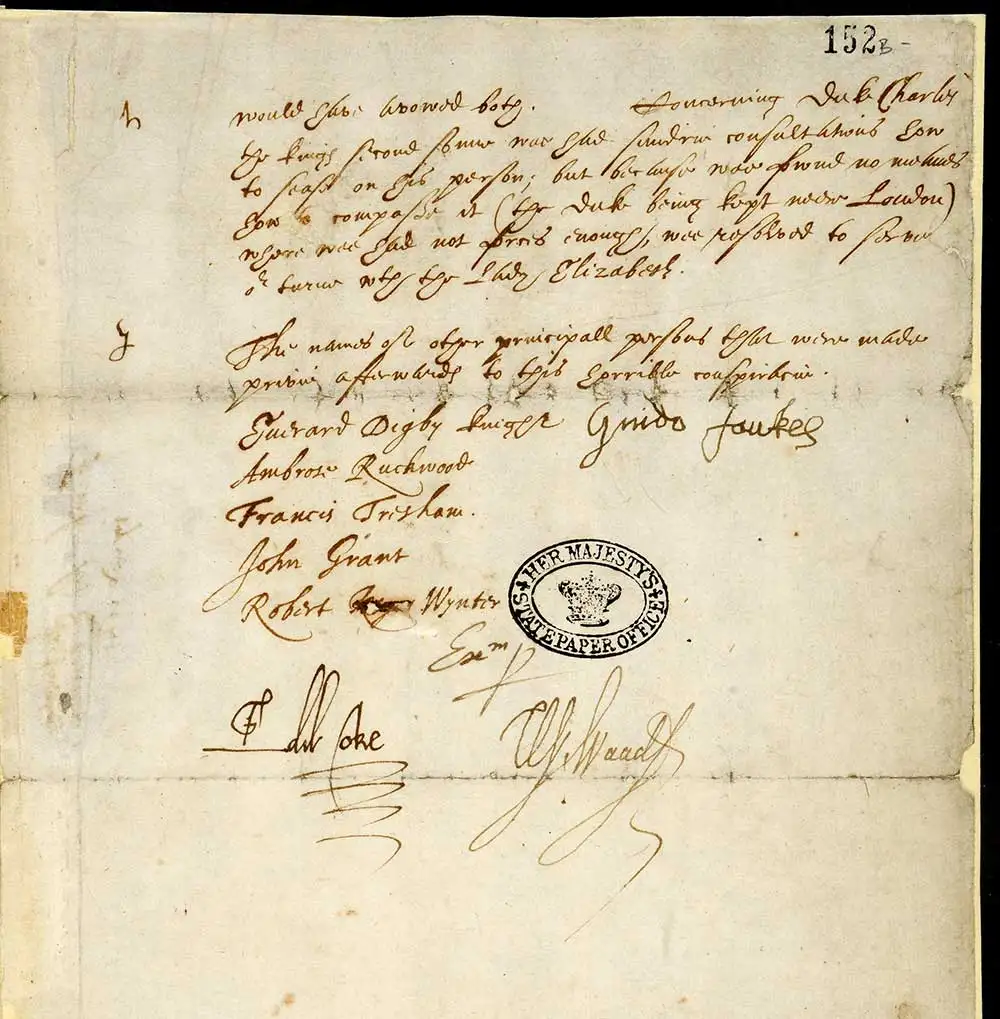 152 B -
h would have avowed both. Concerning Duke Charles
the kings second sonne wee had sundrie consultations how
to sease on his person; but because wee found no meanes
how compasse it (the Duke being kept neere London)
where wee had not forces enough, wee resolved to serve
or turne wth the Lady Elizabeth.
The names of other principall persons that were made
privie afterwards to this horrible conspiracie.
Everard Digby knight Guido Faukes
Ambrose Ruckwood
Francis Tresham.
John Grant
Robert Wynter
HER MAJESTY'S
STATE PAPER OFFICE
Exm p
Edw Coke W. Waad